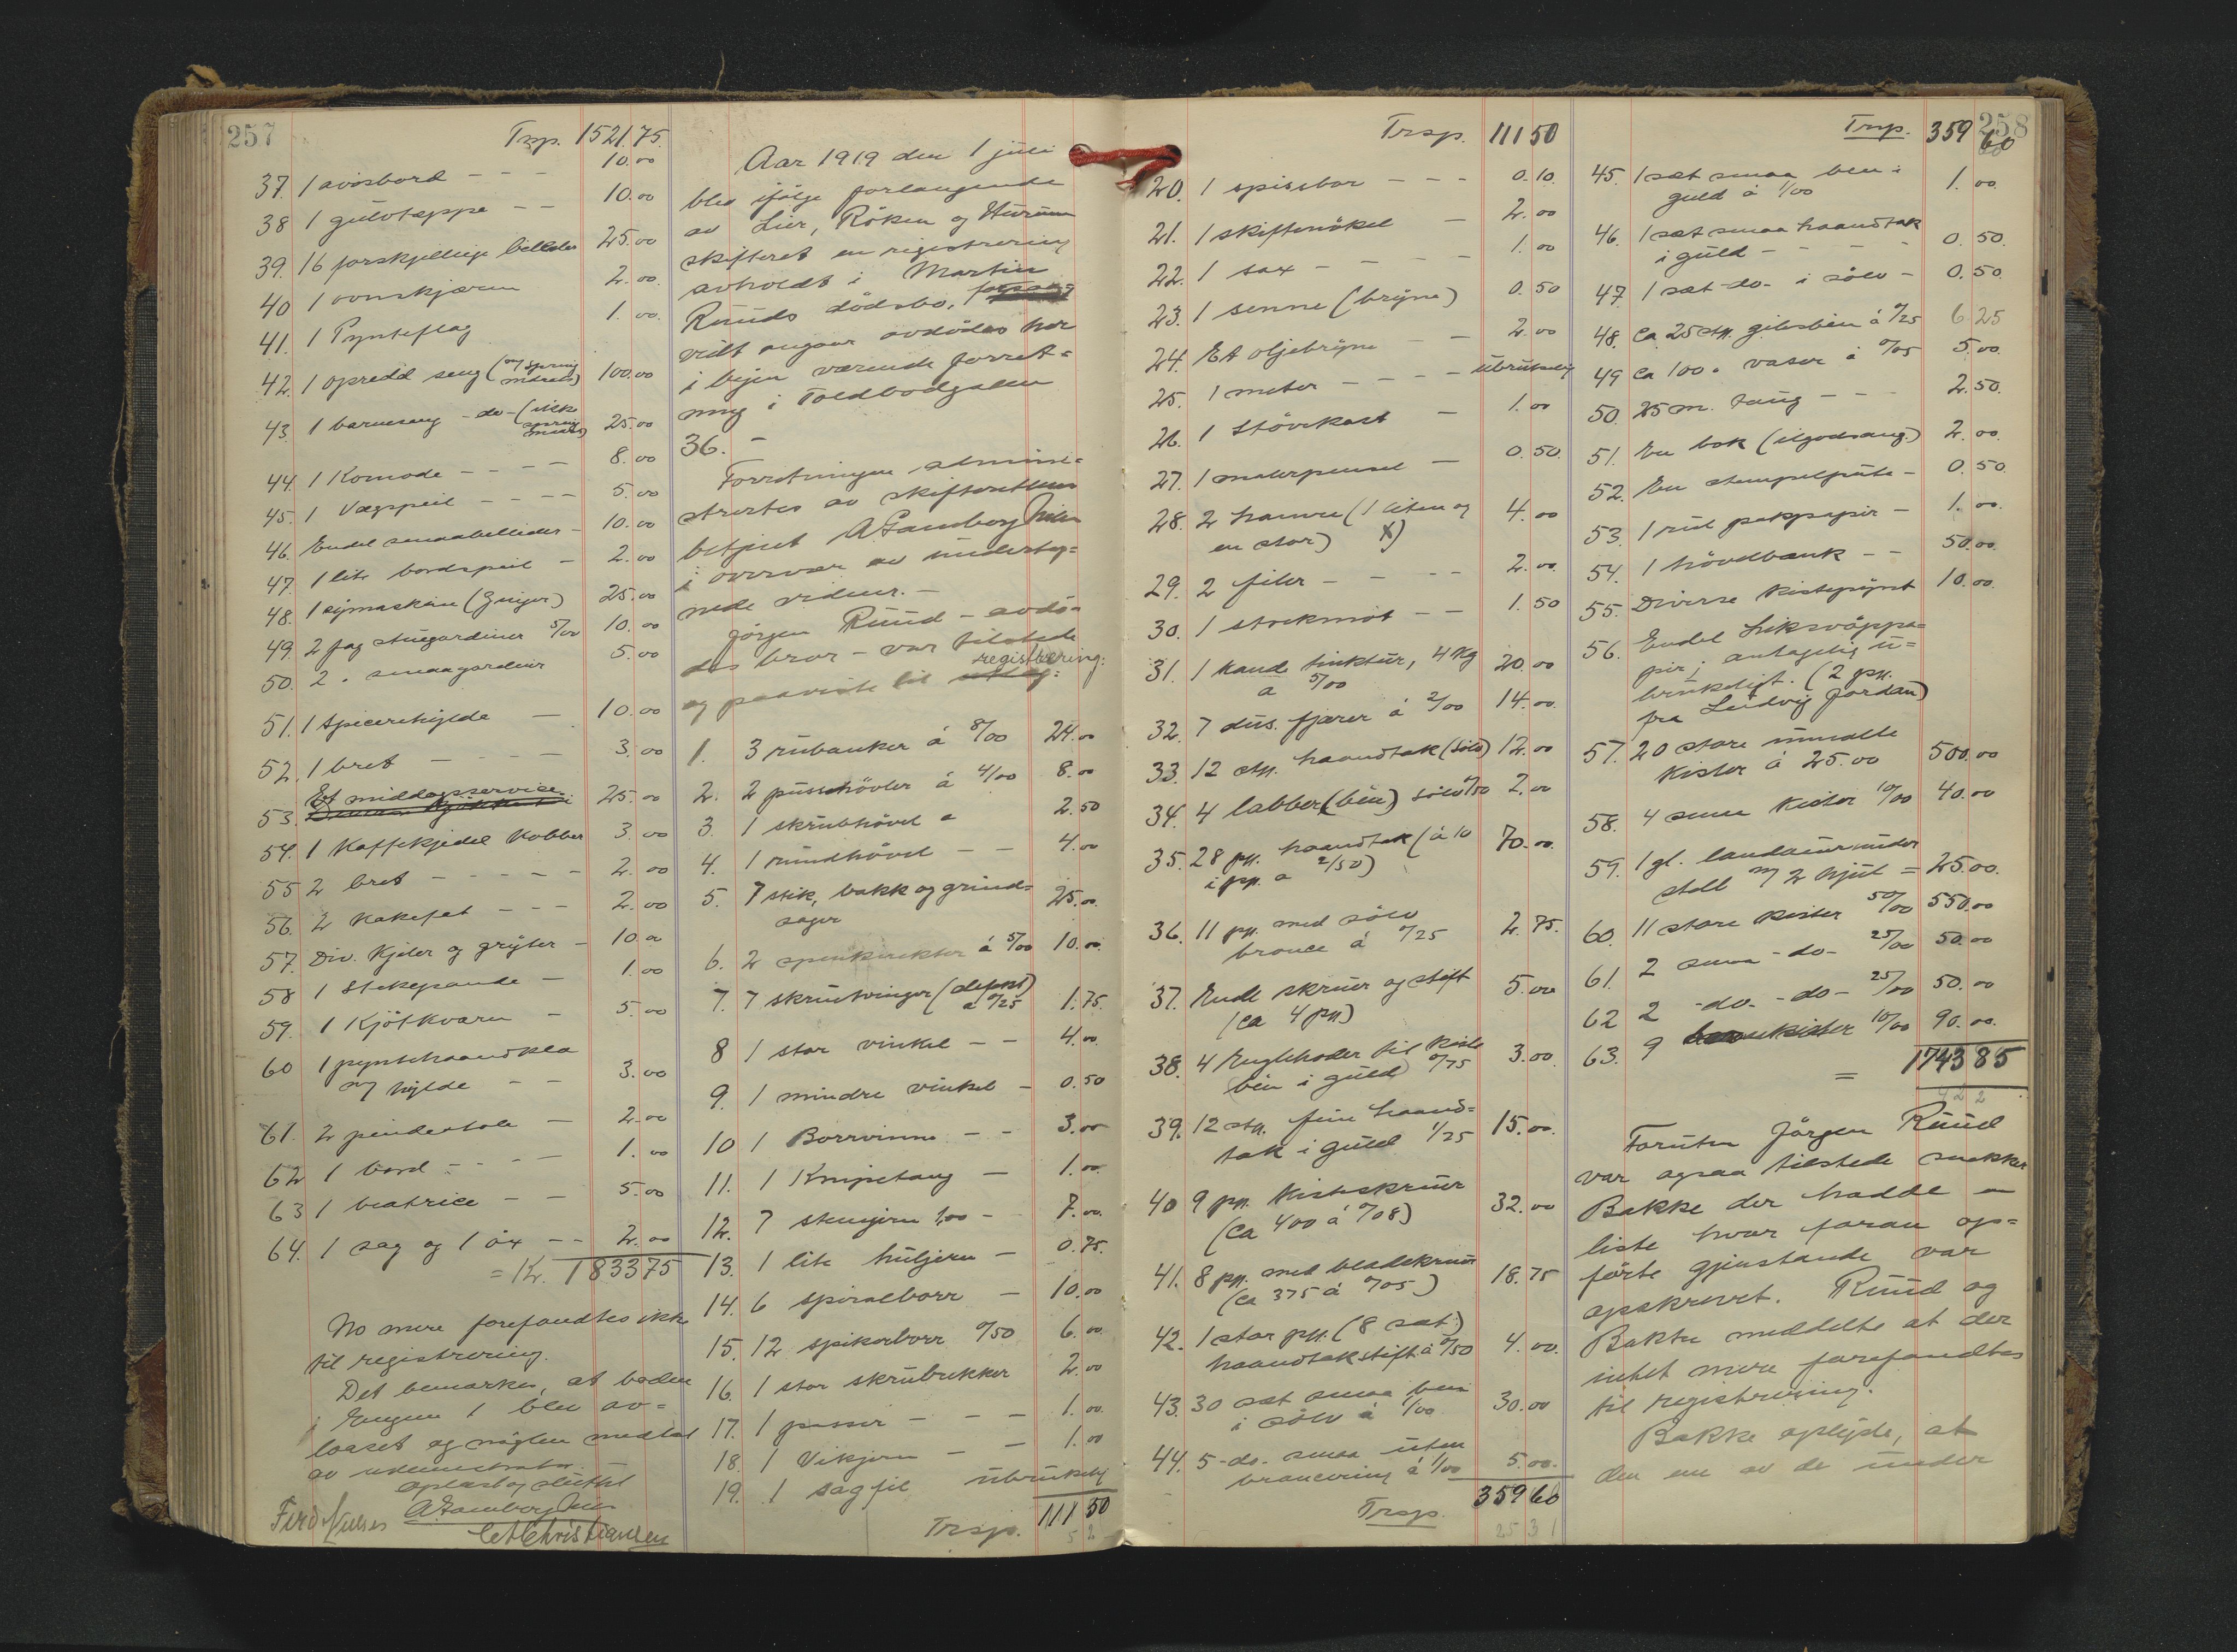 257
Trsp. 1521.75.
37. 1 avisbord - - - 10.00
38 1 gulvtæppe - - 10.00
39. 16 forskjellige billeder 25.00
40 1 ovnskjærm 2.00.
41. 1 Pynteflag 1.00.
42. 1 opredd seng (m/ spring madrats) 100.00
43. 1 barneseng - do - (ikke spring madrs) 25.00
44. 1 Komode - - - - 8.00
45. 1 Vægspeil - - - - 5.00
46. Endel smaabilleder - 10.00
47. 1 lite bordspeil - 2.00
48. 1 symaskin (Zinger) 25.00
49. 2 fag stuegardiner 5/00 10.00
50. 2 " smaagardiner 5.00
51. 1 Spicerehylde - 10.00
52. 1 bret - - - 3.00
53. Et middagsservice 25.00
54. 1 Kaffekjedel Kobber 3.00
55 2 bret - - - - - 2.00
56. 2 Kakefat - - - 2.00
57. Div. Kjeler og gryter - 10.00
58 1 Stekepande - 1.00
59. 1 Kjötkværn - 5.00
60 1 pyntehaandklæ
m/ hylde - - 3.00
61. 2 pindestole - 2.00
62 1 bord - - - - 1.00
63 1 beatrice - - 5.00
64. 1 sag og 1 öx - - 2.00
= Kr. 1833 75
No mere forefandtes ikke
til registrering.
Det bemærkes, at boden
i Engene 1 blev av-
laaset og nöglen medtat
av administrator. -
oplæst og sluttet
A. Tamborg
Ferd. Nielsen
C A Christiansen
Aar 1919 den 1 juli
blev ifölge forlangende
av Lier, Röken og Hurum
skifteret en registrering
avholdt i Martin
Ruuds dödsbo,
vidt angaar avdödes her
i byen værende forret-
ning i Toldbodgaten
36. -
Forretningen admini-
strertes av skifteretten
betjent A Tamborg
i overvær av underteg-
nede vidner. -
Jörgen Ruud - avdö-
des bror - var tilstede
og paaviste til registrering:
1. 3 rubanker á 8/00 24.00
2. 2 pusshövler á 4/00 8.00
3. 1 skrubhövel " 2.50
4. 1 rundhövel - - 4.00
5. 7 stik, bakk og grind-
sager 25.00.
6. 2 spenkirekter á 5/00 10.00.
7. 7 skrutvinger (defekt) á 0/25 1.75.
8 1 stor vinkel - - 4.00.
9. 1 mindre vinkel - 0.50
10 1 Borrvinne - - 3.00
11. 1 Knipetang - 1.00.
12. 7 stemjern 1,00 - 7.00.
13. 1 lite huljern - 0.75.
14. 6 spiralborr - 10.00
15. 12 spikerborr 0/50 6.00
16. 1 stor skrutrekker 2.00
17. 1 passer - - - 1.00.
18. 1 Vikjern - - 1.00
19. 1 sagfil ubrukelig
Trsp. 111 50
Trsp. 111 50
20. 1 spissbor - - - 0.10.
21. 1 skiftenökel - 2.00
22. 1 sax - - - - 1.00
23. 1 senne (bryne) 0.50
24. Et oljebryne - - 2.00
25. 1 meter - - - - ubrukelig
26. 1 Stövekost - 1.00
27. 1 malerpensel - 0.50.
28. 2 hamre (1 liten og
en stor) X) 4.00
29. 2 filer - - - - 2.00.
30. 1 stockmot - - 1.50
31. 1 kande tinktur, 4 Kg
a 5/00 20.00
32. 7 dus. fjærer á 2/00 14.00.
33. 12 stk. haandtak (sölv) 12.00
34. 4 labber (bén) sölv 0/50 2.00
35. 28 pk. haandtak (á 10
i pk. a 2/50) 70.00.
36. 11 pk. med sölv
bronce á 0/25 2.75.
37. Endl skruer og stift
(ca 4 pk) 5.00
38. 4 Englehoder til kiste
bén i guld 0/75 3.00.
39. 12 stk. fine haand-
tak i guld 1/25 15.00.
40 9 pk. Kisteskruer
(Ca 400 á 0/08) 32.00
41. 8 pk. med bladskruer
(Ca 375 á 0/05) 18.75
42. 1 stor pk. (8 sæt)
haandtakstift á 0/50 4.00.
43. 30 sæt smaa ben
i sölv á 1/00 30.00
44. 5 - do - smaa uten
broncering á 1/00 5.00.
Trsp. 359 60
258
Trsp. 359 60
45. 1 sæt smaa ben i
guld á 1/00 1.00.
46. 1 sæt smaa haandtak
i guld - - - - 0.50.
47 1 sæt - do - i sölv - 0.50.
48. Ca 25 stk. gibsbén á 0/25 6 25
49 Ca 100 " vaser á 0/05 5.00.
50. 25 m. taug - - - 2.50.
51. En bok (ilgodsang.) 2.00.
52. En stempelpute - 0.50.
53. 1 rul pakpapir - 1.00.
54. 1 hövelbænk - - 50.00.
55. Diverse kistepynt 10.00.
56. Endel Liksvöppa-
pir, antagelig u-
brukeligt. (2 pk.
fra Ludvig Jordan)
57. 20 store umalte
Kister á 25.00 500.00
58. 4 smaa Kister 10/00 40.00
59. 1 gl. landauerunder
stell m/ 2 hjul = 25.00.
60. 11 store kister 50/00 550.00
61. 2 smaa - do - 25/00 50.00
62 2 - do - - do - 25/00 50.00
63. 9 barnekister 10/00 90.00.
= 1743 85
Foruten Jörgen Ruud
var ogsaa tilstede snekker
Bakke der hadde en
liste hvor foran op-
förte gjenstande var
opskrevet. Ruud og
Bakke meddelte at der
intet mere forefandtes
til registrering.
Bakke oplyste, at
den ene av de under